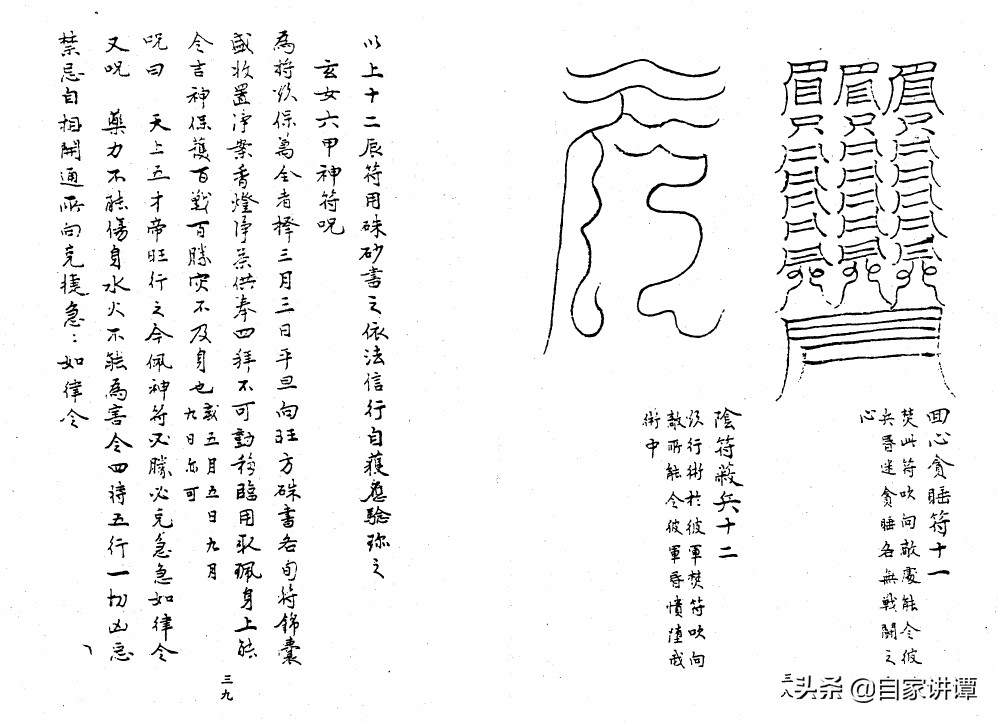 回心貪睡符十一
焚此符吹向敵處能令彼
兵昏迷貪睡各無戰鬭之
心
陰符蔽兵十二
欲行術於彼軍焚符吹向
敵所能令彼軍昏憒墮我
術中
三八
以上十二辰符用硃砂書之依法信行自獲應驗珎之
玄女六甲神符呪
為將欲保萬全者擇三月三日平旦向旺方硃書各旬符錦囊
盛收置淨案香燈淨茶供奉四拜不可動移臨用取珮身上能
令吉神保護百戰百勝灾不及身也或五月五日九月
九日亦可
呪曰 天上五才帝旺行之今佩神符必勝必克急急如律令
又呪 藥力不能傷身水火不能為害令四時五行一切凶惡
禁忌自相開通所向克捷急：如律令
三九
头条 @自家讲谭